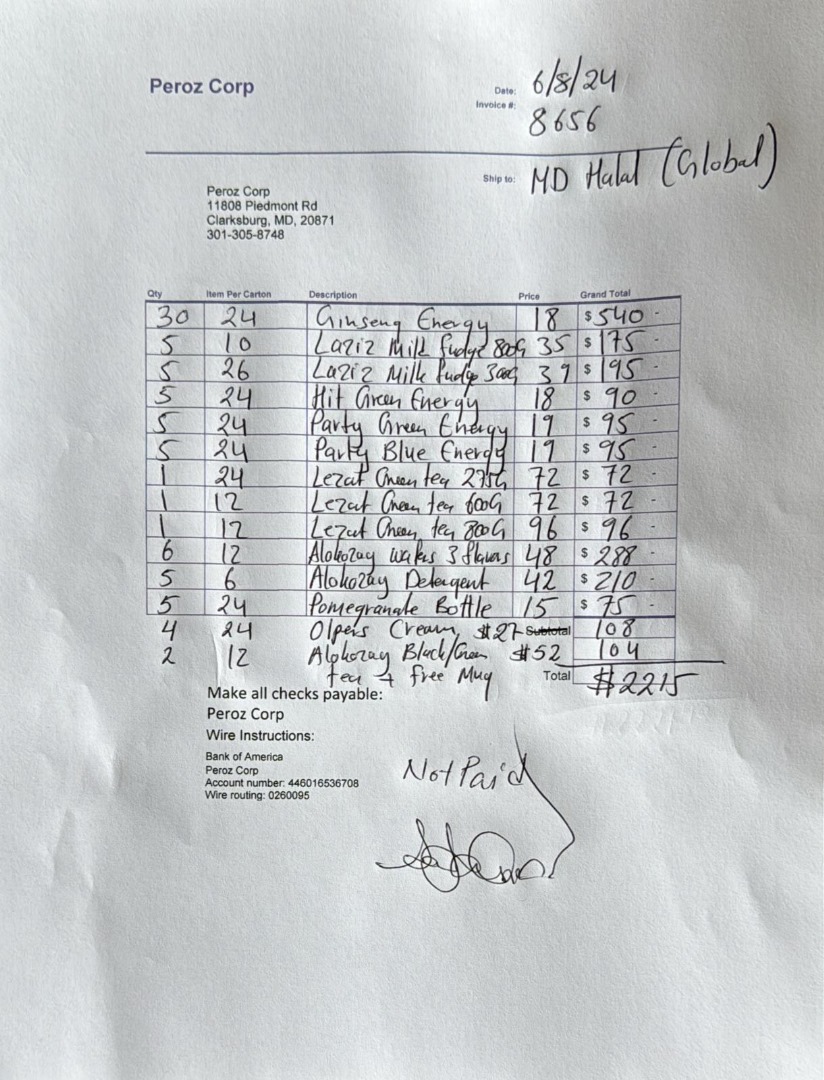 Peroz Corp
Date: 6/8/24
Invoice #: 8656
Ship to: MD Halal (Global)
Peroz Corp
11808 Piedmont Rd
Clarksburg, MD, 20871
301-305-8748
Qty Item Per Carton Description Price Grand Total
30 24 Ginseng Energy 18 $ 540 -
5 10 Laziz Milk fudge 800G 35 $ 175 -
5 26 Laziz Milk fudge 300G 39 $ 195 -
5 24 Hit Green Energy 18 $ 90 -
5 24 Party Green Energy 19 $ 95 -
5 24 Party Blue Energy 19 $ 95 -
1 24 Lezat Green tea 275G 72 $ 72 -
1 12 Lezat Green tea 600G 72 $ 72 -
1 12 Lezat Green tea 800G 96 $ 96 -
6 12 Alokozay 3 flavors 48 $ 288 -
5 6 Alokozay Detergent 42 $ 210 -
5 24 Pomegranate Bottle 15 $ 75 -
4 24 Olpers Cream $27 Subtotal 108
2 12 Alokozay Black/Green $52 104
tea + free Mug Total $2215
Make all checks payable:
Peroz Corp
Wire Instructions:
Bank of America
Peroz Corp
Account number: 446016536708
Wire routing: 0260095
Not Paid